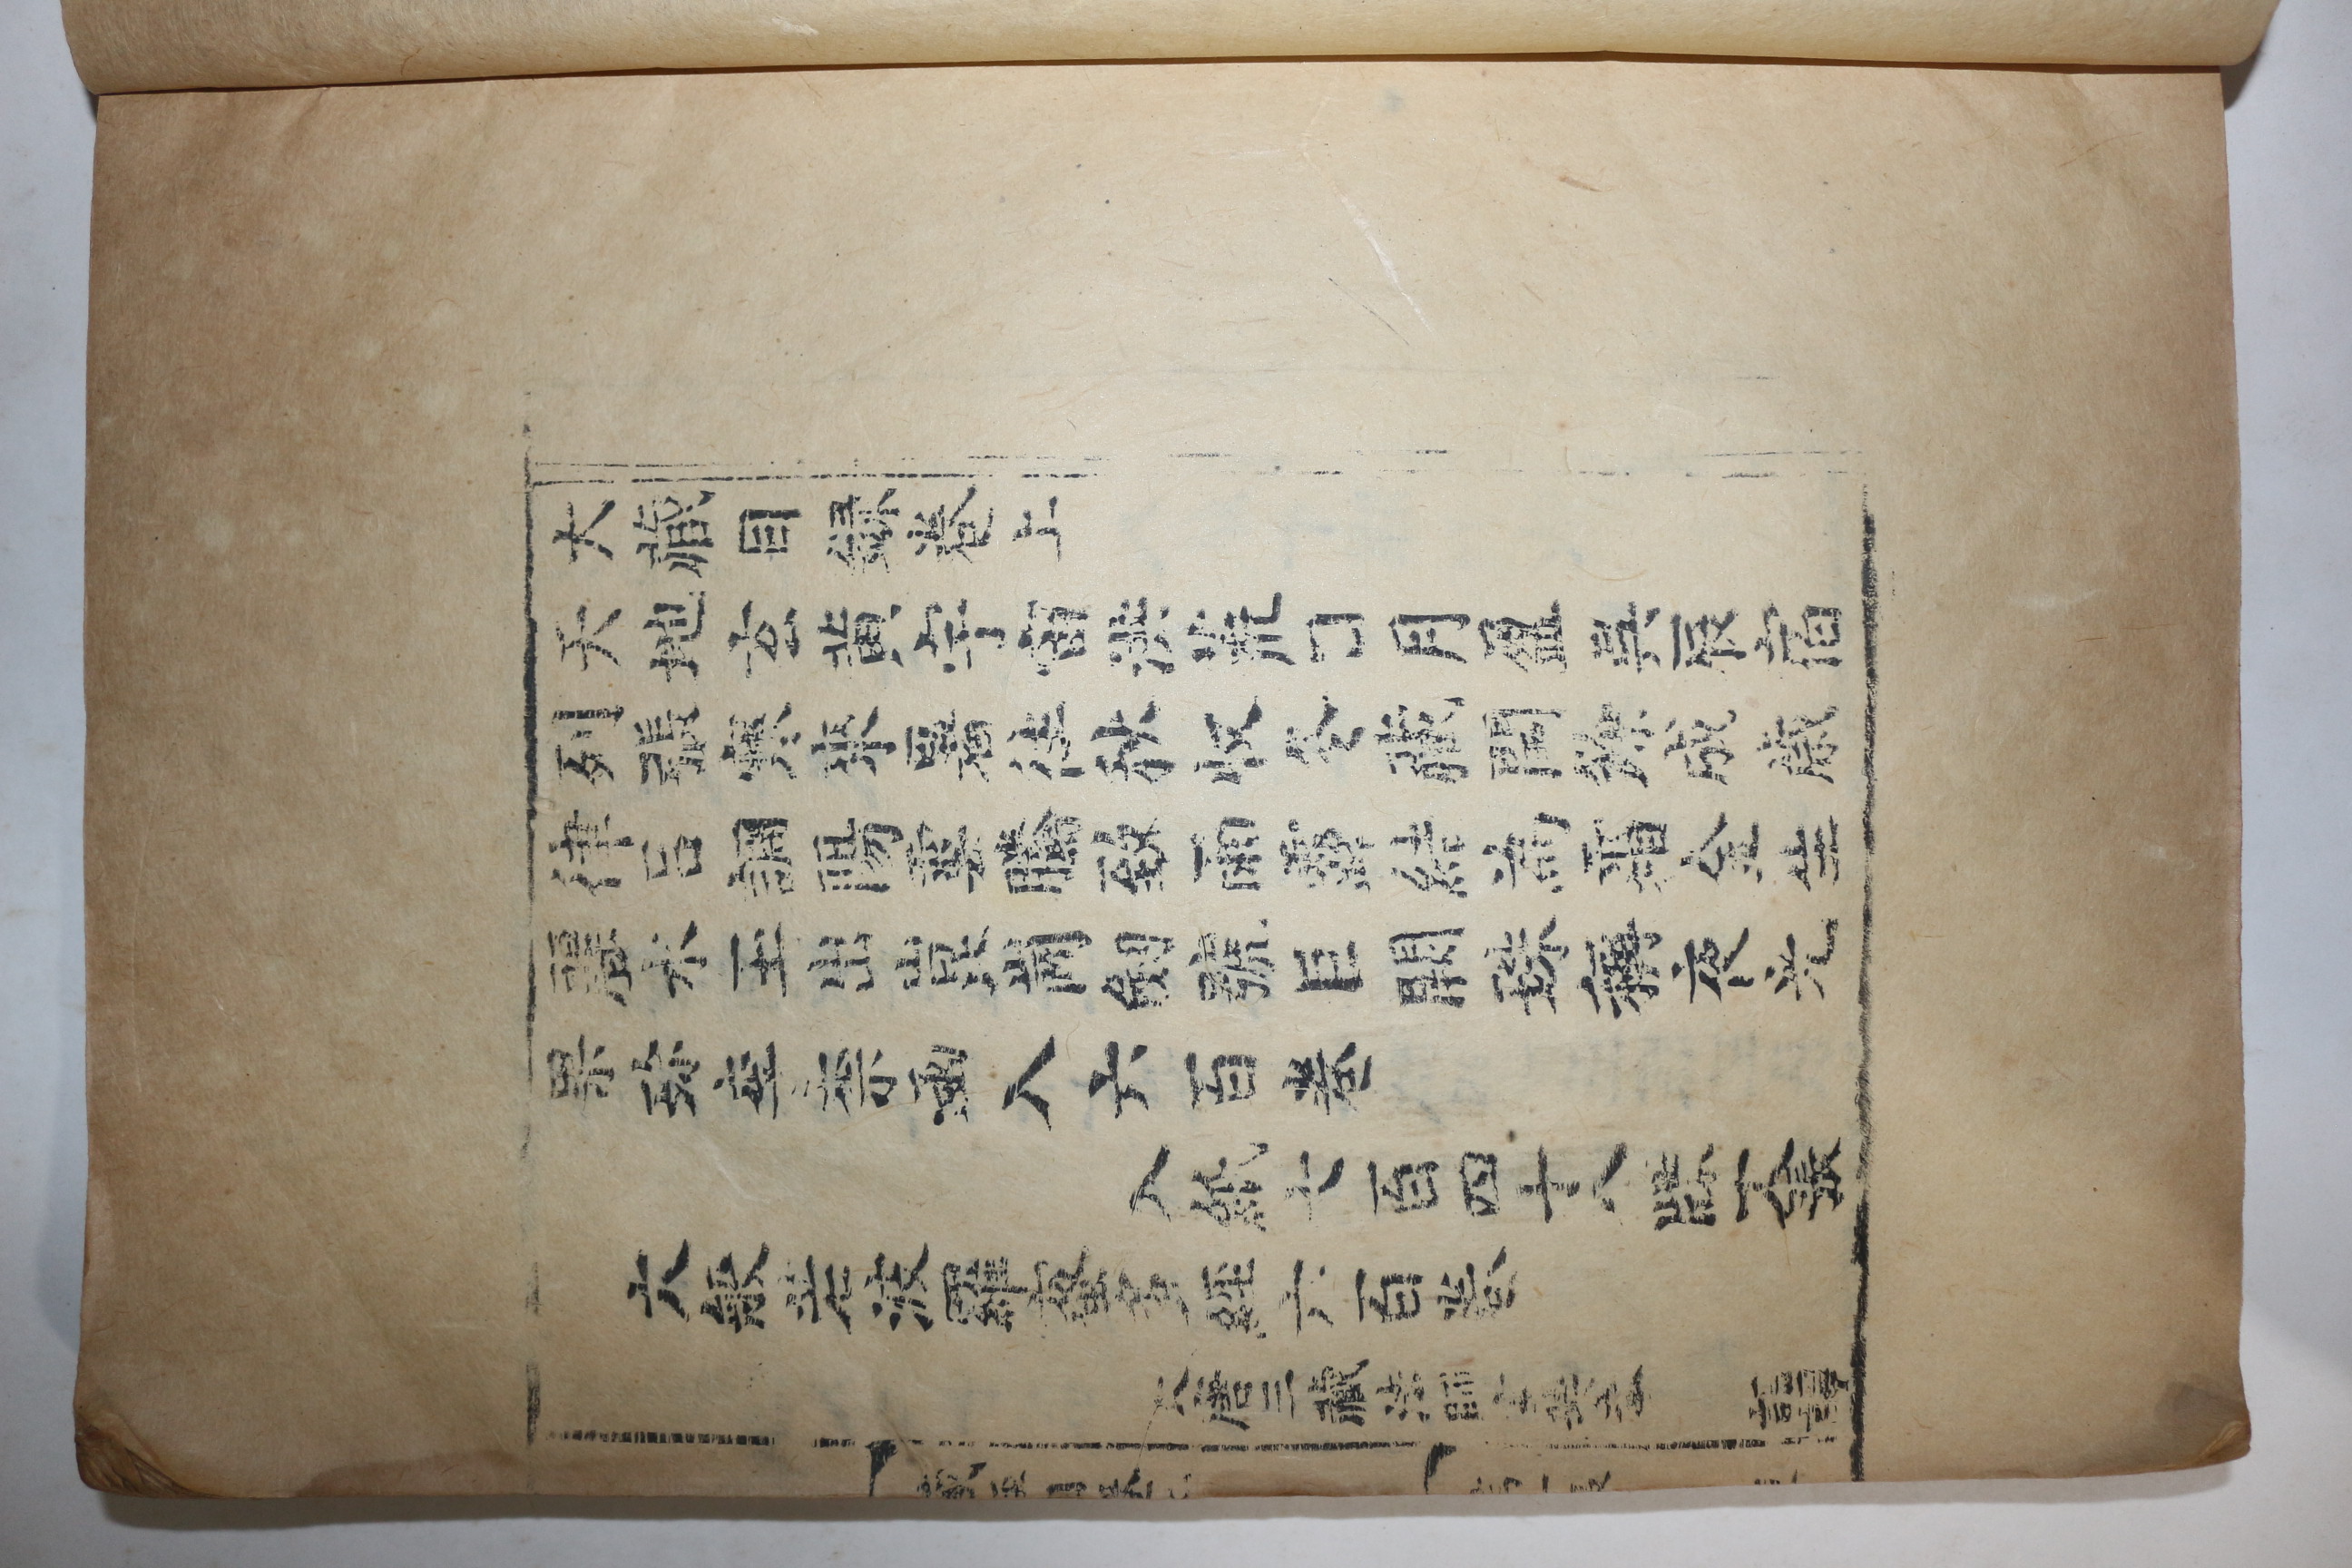 大藏目録卷上
天地玄黄宇宙洪荒日月盈昃辰宿
列張寒來暑往秋收冬藏閏餘成歲
律吕調陽雲騰致雨露結為霜金生
麗水玉出崑崗劒號巨闕珠稱夜光
果珍李柰函入六百卷
入紙七百四十八牒張
大般若波羅蜜多經六百卷
大唐三藏法師玄奘